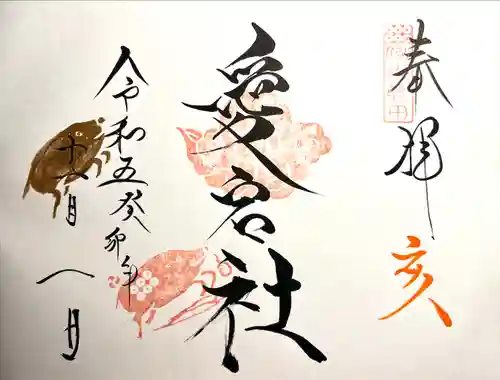 奉拝
亥
愛宕社
令和五癸卯年
十一月
八日